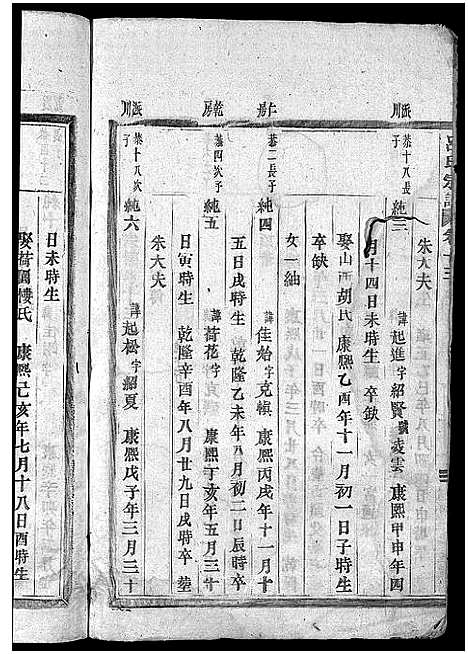 呂氏宗譜 卷十三
朱大夫
派川
恭十八長子
純三 諱起進字紹賢號凌雲 康熙甲申年四
月十四日未時生 卒缺
娶山西胡氏 康熙乙酉年十一月初一日子時生
卒缺
女一紬
仁居
恭二長子
純四 諱佳始字克慎 康熙丙戌年十一月十
五日戌時生 乾隆乙未年八月初二日辰時卒
乾房
恭四次子
純五 諱荷花字 康熙丁亥年五月三十
日寅時生 乾隆辛酉年八月廿九日戌時卒 葬
朱大夫
派川
恭十八次子
純六 諱起松字紹夏 康熙戊子年三月三十
日未時生
娶荷園樓氏 康熙己亥年七月十八日酉時生